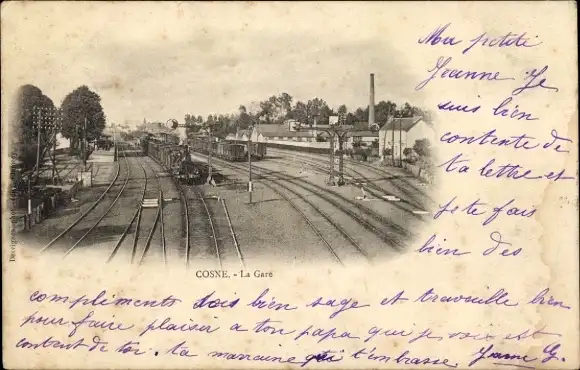 Ma petite
Jeanne Je
suis bien
contente de
ta lettre et
je te fais
bien des
COSNE. - La Gare
compliments sois bien sage et travaille bien
pour faire plaisir a ton papa que je vois est
content de toi. ta marraine qui t'embrasse Jeanne G.